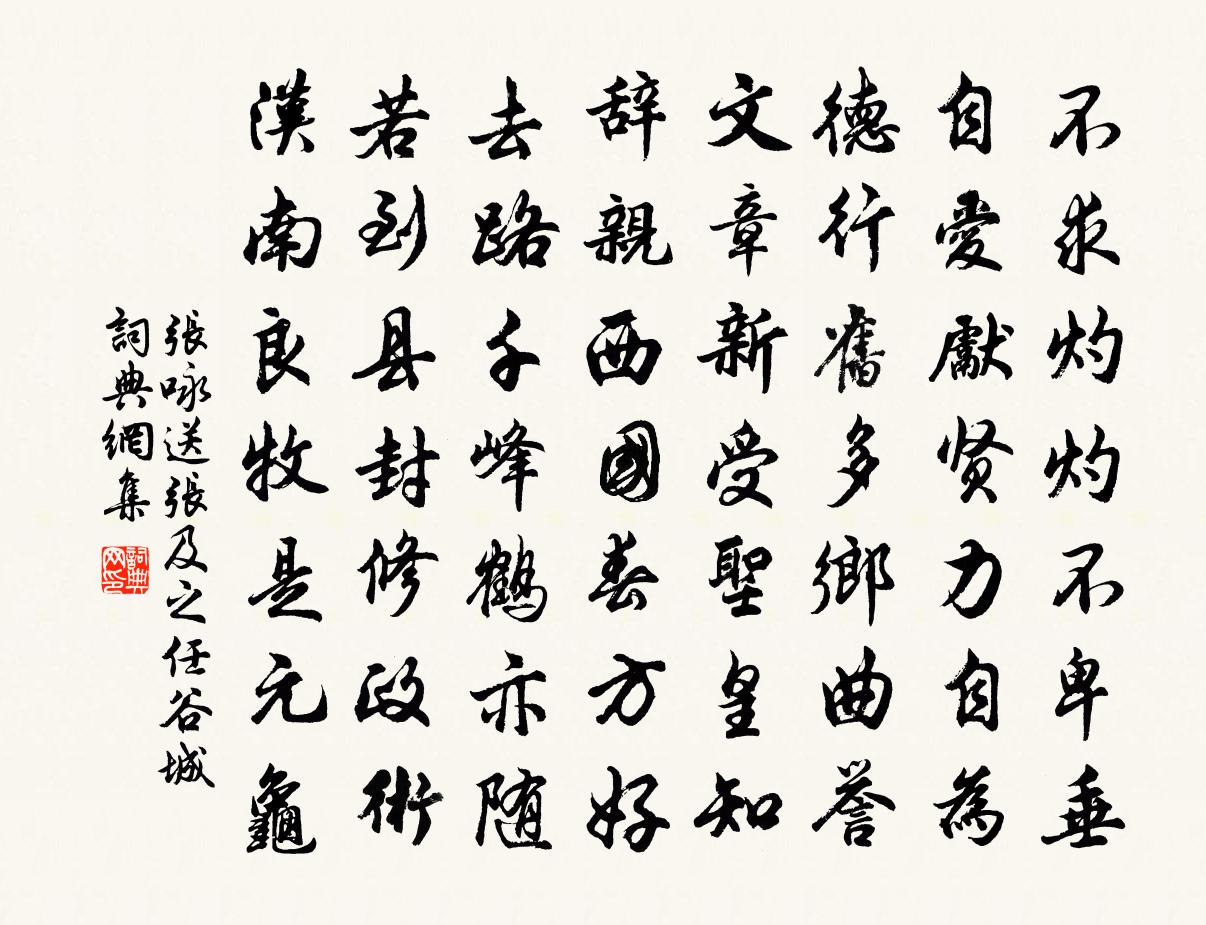 不求灼灼不卑垂
自愛獻贤力自為
德行舊多鄉曲誉
文章新受聖皇知
辞親西國春方好
去路千峰鶴亦随
若到县封修政術
漢南良牧是元龜
張咏送張及之任谷城
詞典網集
詞典网印